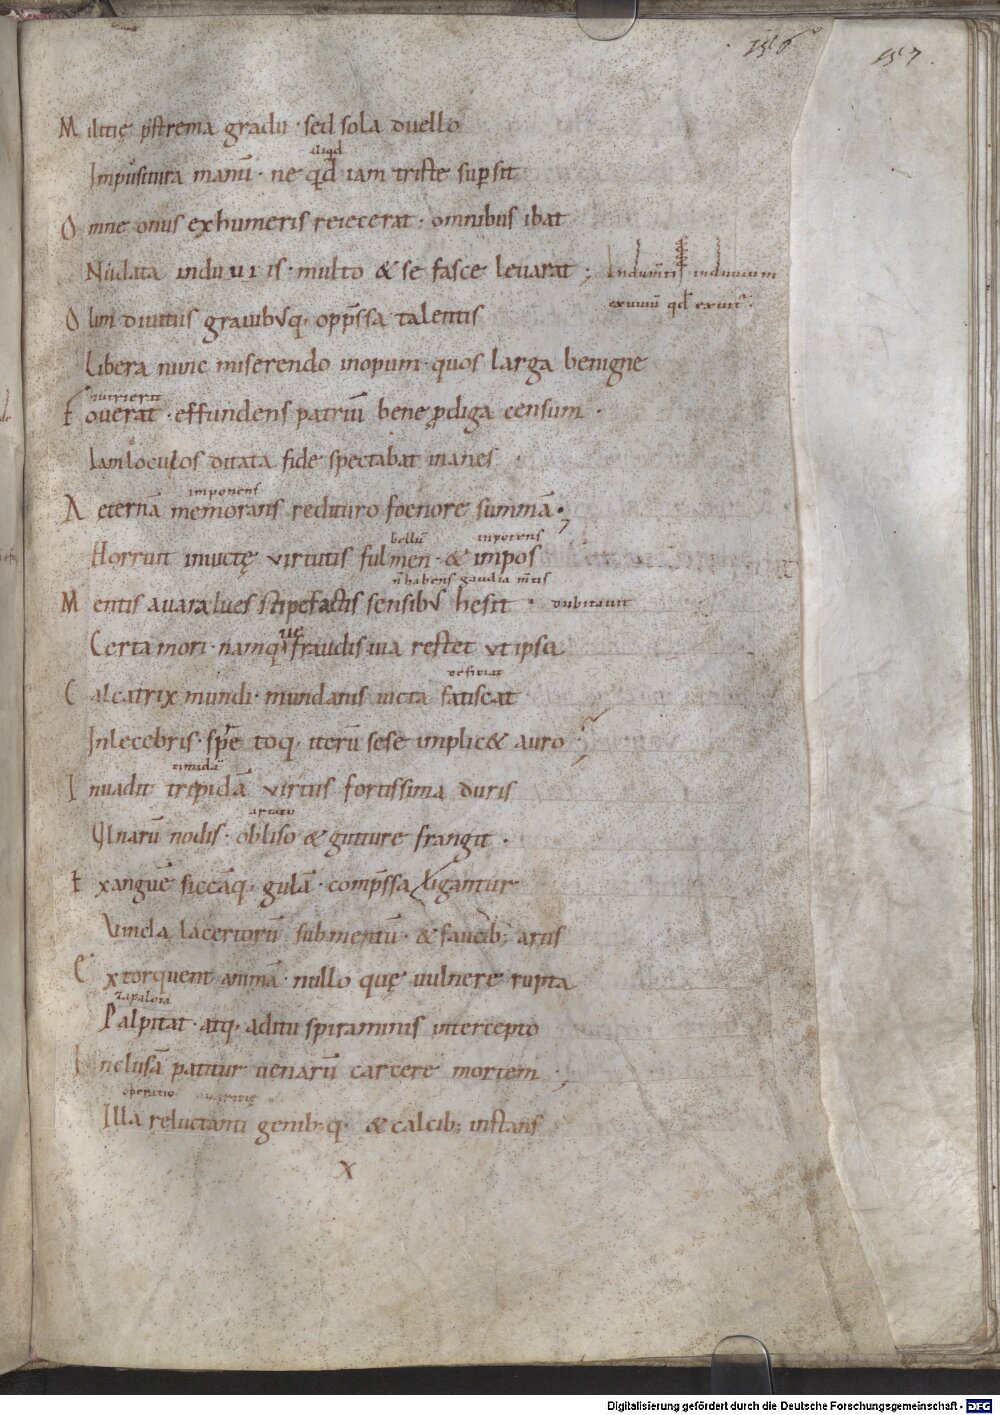 156 157.
Militię p̄strema gradu · sed sola duello
aliqd
Impusitura manū · ne qd̄ iam triste supsit
Omne onus ex humeris reiecerat · omnibus ibat
Nudata induuiis · multo & se fasce leuarat ; Indum̄ti induuium
exuuiū qd̄ exuit̄ .
Olim diuitiis grauibusq· opp̄ssa talentis
Libera nunc miserendo inopum · quos larga benigne
nutrierit
Fouerat · effundens patriū bene ꝓdiga censum ·
Iam loculos ditata fide spectabat inanes
imponens
Aeternā memorans redituro foenore summā ·
bellū inpotens
Horruit inuictę virtutis fulmen · & impos
n̄ habens gaudia m̄tis
Mentis auara lues stipefactis sensibus hesit · dubitauit
ue
Certa mori · namq· fraudis uia restet vt ipsa
deficiat
Calcatrix mundi · mundanis uicta fatiscat
Inlecebris · sp̄e toq· iterū sese implic& auro ;
timidā
Inuadit trepidā virtus fortissima duris
artato
Vlnarū nodis · obliso & gutture frangit ·
Exanguē siccāq· gulā · comp̄ssa ligantur
Vincla lacertorū sub mentū · & faucib; artis
Extorquent animā · nullo quę uulnere rupta
Palpitat · atq· aditu spiraminis intercepto
Inclusā patitur uenarū carcere mortem ;
operatio auaritię
Illa reluctanti genib;q· & calcib; instans
X
Digitalisierung gefördert durch die Deutsche Forschungsgemeinschaft - DFG